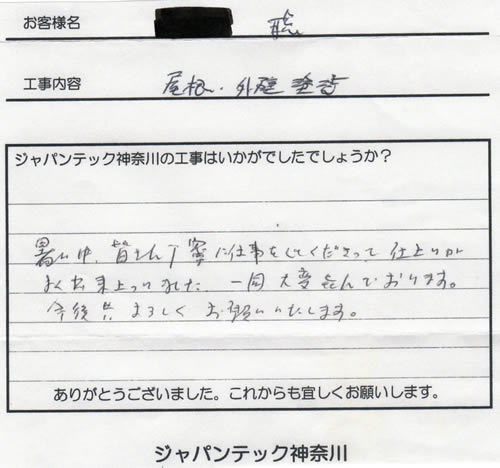 お客様名 聡
工事内容 屋根、外壁塗替
ジャパンテック神奈川の工事はいかがでしたでしょうか?
暑い中、皆さん丁寧に仕事をしてくださって仕上りが
よく出来上っいました 一同大変喜んでおります。
今後共よろしくお願いいたします。
ありがとうございました。これからも宜しくお願いします。
ジャパンテック神奈川